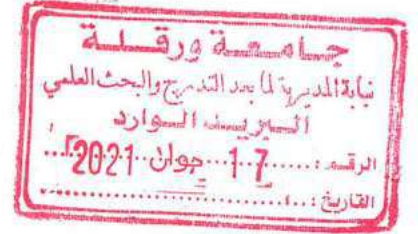 جامعة ورقلة
نيابة المديرية لما بعد التدرج والبحث العلمي
البريد الوارد
الرقم : ....... 17 جوان 2021
التاريخ : .......